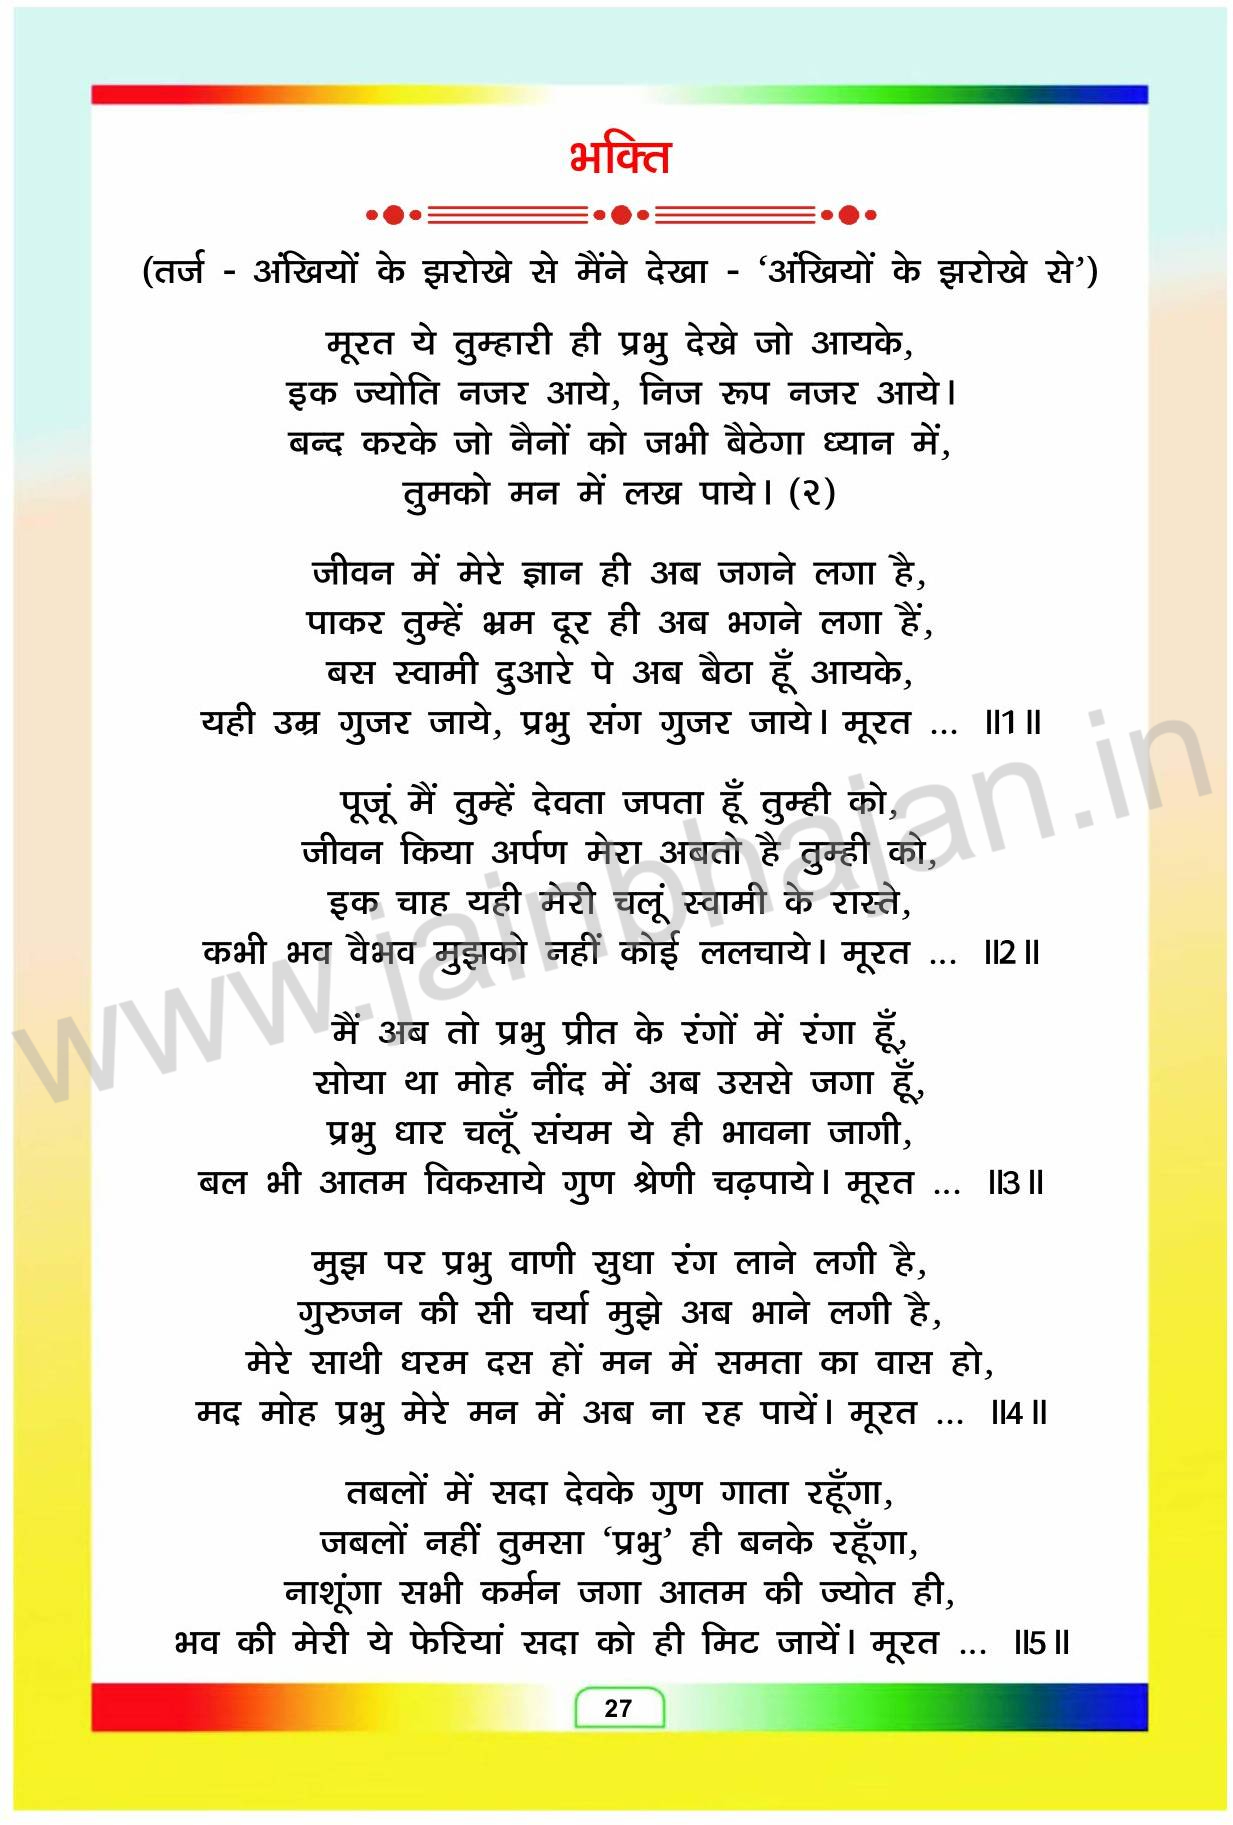 भक्ति
(तर्ज - अंखियों के झरोखे से मैंने देखा - ‘अंखियों के झरोखे से’)
मूरत ये तुम्हारी ही प्रभु देखे जो आयके,
इक ज्योति नजर आये, निज रूप नजर आये।
बन्द करके जो नैनों को जभी बैठेगा ध्यान में,
तुमको मन में लख पाये। (२)
जीवन में मेरे ज्ञान ही अब जगने लगा है,
पाकर तुम्हें भ्रम दूर ही अब भगने लगा हैं,
बस स्वामी दुआरे पे अब बैठा हूँ आयके,
यही उम्र गुजर जाये, प्रभु संग गुजर जाये। मूरत ... ॥1॥
पूजूं मैं तुम्हें देवता जपता हूँ तुम्ही को,
जीवन किया अर्पण मेरा अबतो है तुम्ही को,
इक चाह यही मेरी चलूं स्वामी के रास्ते,
कभी भव वैभव मुझको नहीं कोई ललचाये। मूरत ... ॥2॥
मैं अब तो प्रभु प्रीत के रंगों में रंगा हूँ,
सोया था मोह नींद में अब उससे जगा हूँ,
प्रभु धार चलूँ संयम ये ही भावना जागी,
बल भी आतम विकसाये गुण श्रेणी चढ़पाये। मूरत ... ॥3॥
मुझ पर प्रभु वाणी सुधा रंग लाने लगी है,
गुरुजन की सी चर्या मुझे अब भाने लगी है,
मेरे साथी धरम दस हों मन में समता का वास हो,
मद मोह प्रभु मेरे मन में अब ना रह पायें। मूरत ... ॥4॥
तबलों में सदा देवके गुण गाता रहूँगा,
जबलों नहीं तुमसा ‘प्रभु’ ही बनके रहूँगा,
नाशूंगा सभी कर्मन जगा आतम की ज्योत ही,
भव की मेरी ये फेरियां सदा को ही मिट जायें। मूरत ... ॥5॥
27
www.jainbhajan.in